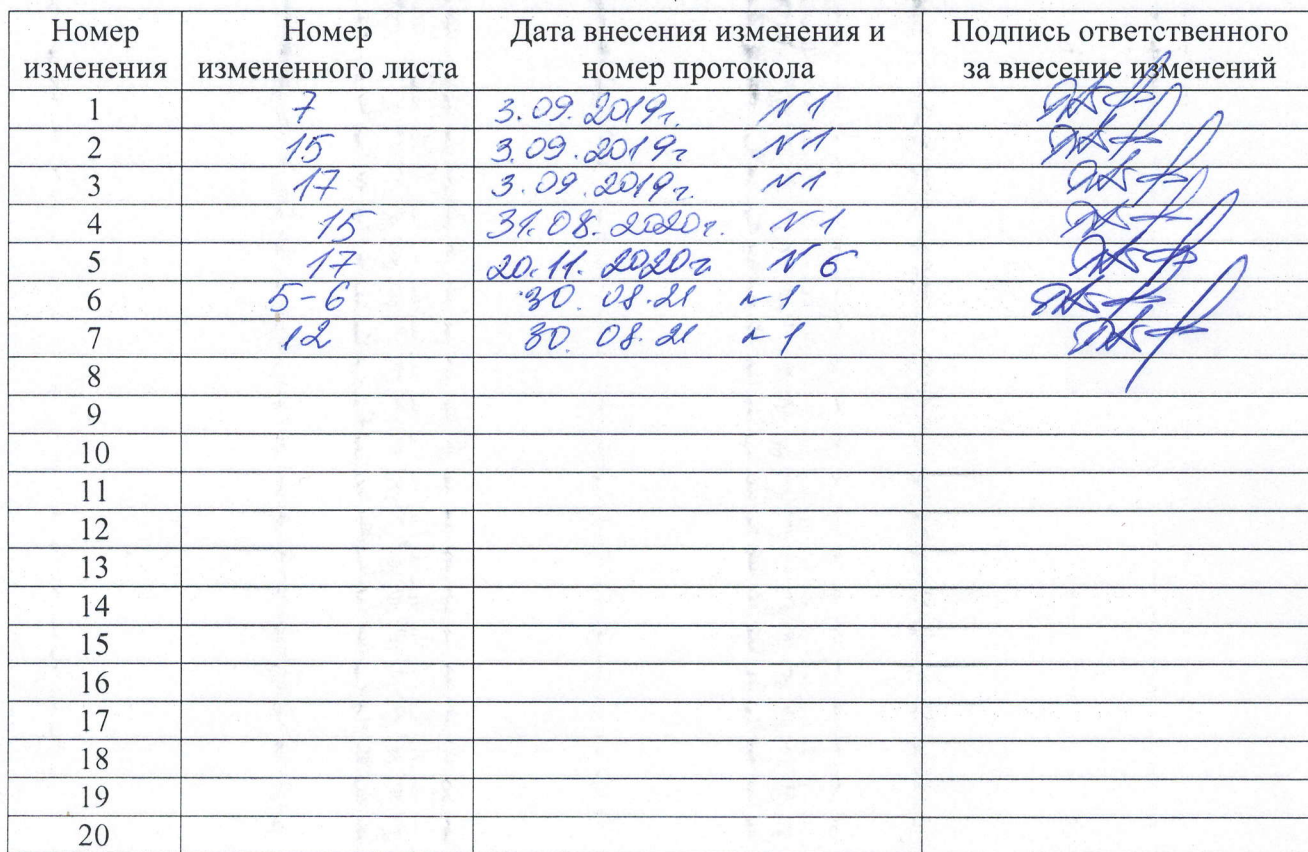 Номер изменения Номер измененного листа Дата внесения изменения и номер протокола Подпись ответственного за внесение изменений
1 7 3.09.2019г. N1
2 15 3.09.2019г N1
3 17 3.09.2019г. N1
4 15 31.08.2020г. N1
5 17 20.11.2020г. N6
6 5-6 30.08.21 N1
7 12 30.08.21 N1
8
9
10
11
12
13
14
15
16
17
18
19
20